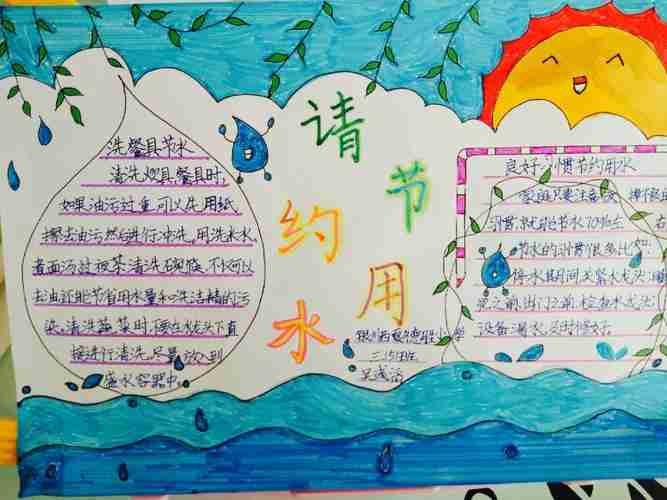 请
节
约
用
水
洗餐具节水
清洗炊具餐具时,
如果油污过重,可以先用纸
擦去油污然后进行冲洗。用洗米水、
煮面汤过夜茶清洗碗筷,不仅可以
去油还能节省用水量和洗洁精的污
染。清洗蔬菜时,要在龙头下直
接进行清洗,尽量放入到
盛水容器中。
良好习惯节约用水
家庭只要注意改掉
习惯就能节水70%左
节水的习惯很多比如
停水期间关紧水龙头
之前、出门之前检查水龙头
设备漏水,及时修好
小学
三
班